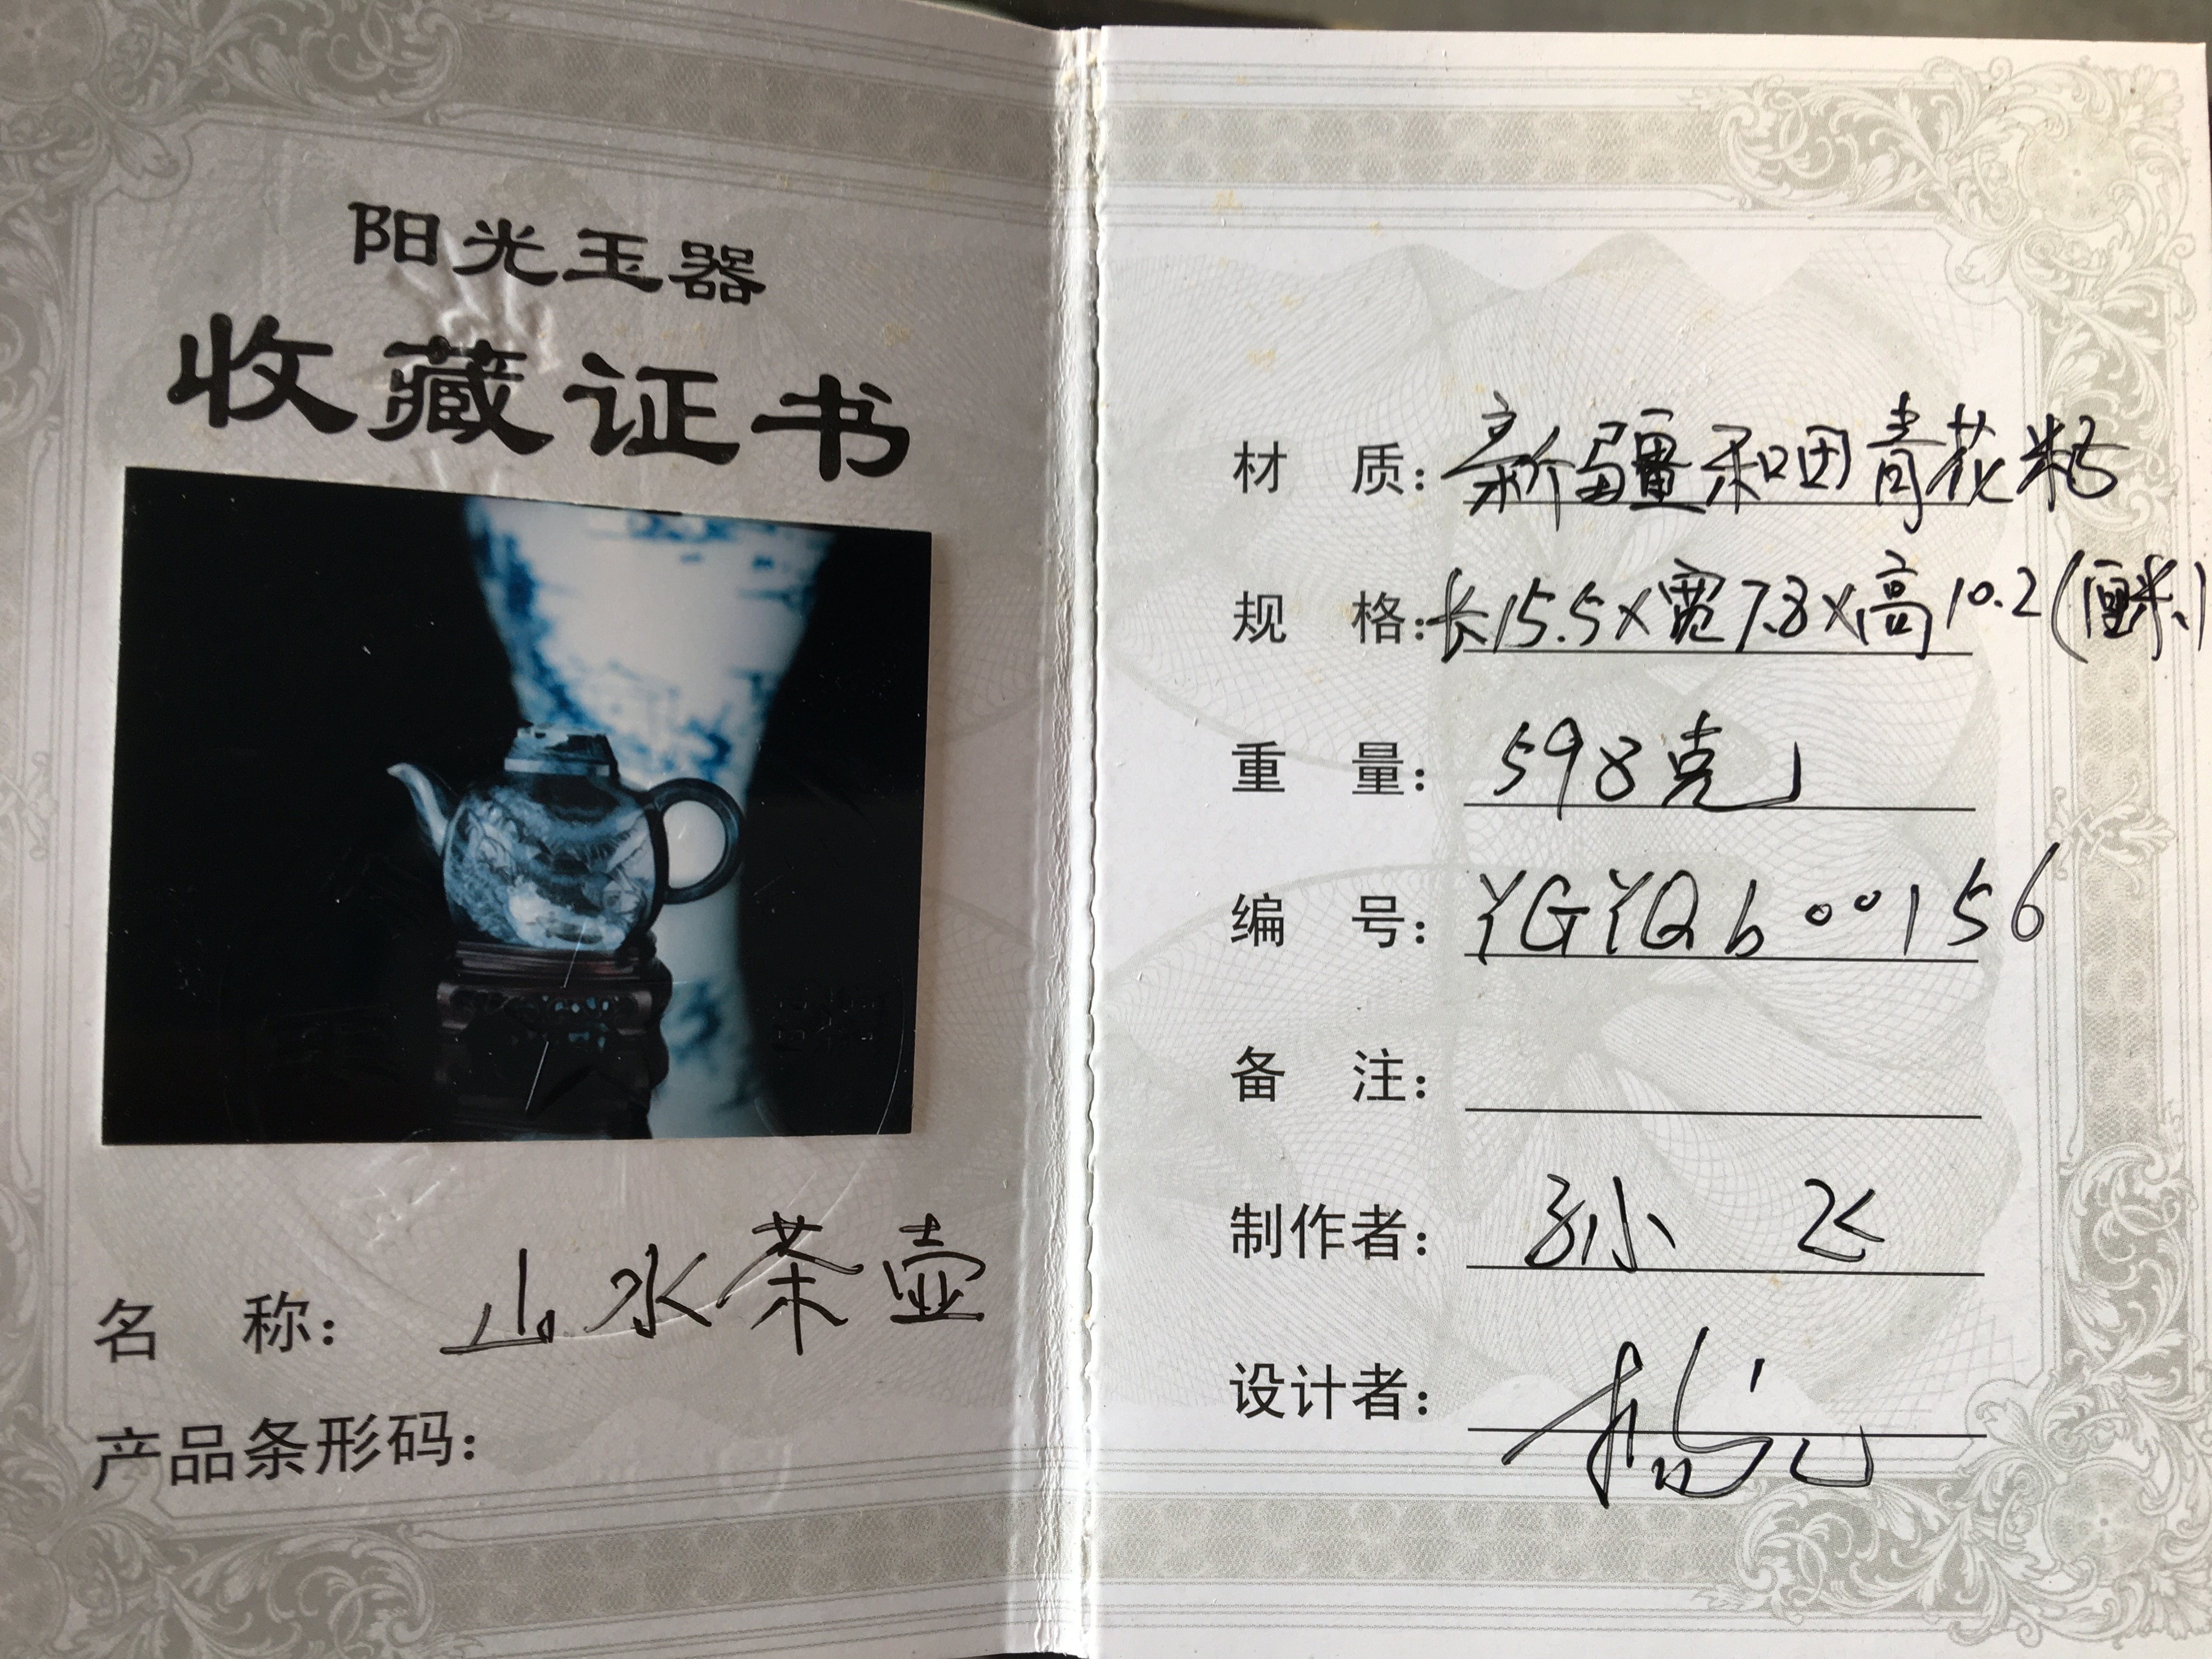 阳光玉器
收藏证书
名 称：山水茶壶
产品条形码：
材 质：新疆和田青花籽
规 格：长15.5×宽7.8×高10.2(厘米)
重 量：598克
编 号：YGYQb00156
备 注：
制作者：孙 飞
设计者：